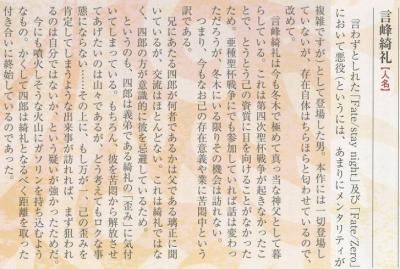 言峰綺礼【人名】
言わずとしれた「Fate/stay night」及び「Fate/Zero」
において悪役（というには、あまりにメンタリティが
複雑ですが）として登場した男。本作には一切登場し
ていないが、存在自体はちらほらと匂わせているので、
改めて。
言峰綺礼は今も冬木で極めて真っ当な神父として暮
らしている。これは第四次聖杯戦争が起きなかったこ
とで、とうとう己の資質に目を向けることがなかった
ため。亜種聖杯戦争にでも参加していれば話は変わっ
ただろうが、冬木にいる限りその機会は訪れない。
つまり、今もなお己の存在意義や業に苦悶中という
訳である。
兄にあたる四郎が何者であるかは父である璃正に聞
いているが、交流はほとんどない。これは綺礼ではな
く、四郎の方が意識的に彼を忌避しているため。
というのも、四郎は義弟である綺礼の「歪み」に気付
いてしまっている。もちろん、彼を苦悶から解放させ
てあげたいのは山々であるが、どう考えてもロクな事
態にならない……その上に、もし万が一、己の歪みを
肯定してしまうような出来事が訪れれば、まず狙われ
るのは自分ではないか、という疑いが強かったためだ。
今にも噴火しそうな火山にガソリンを持ち込むよう
なもの。かくして四郎は綺礼となるべく距離を取った
付き合いに終始しているのであった。